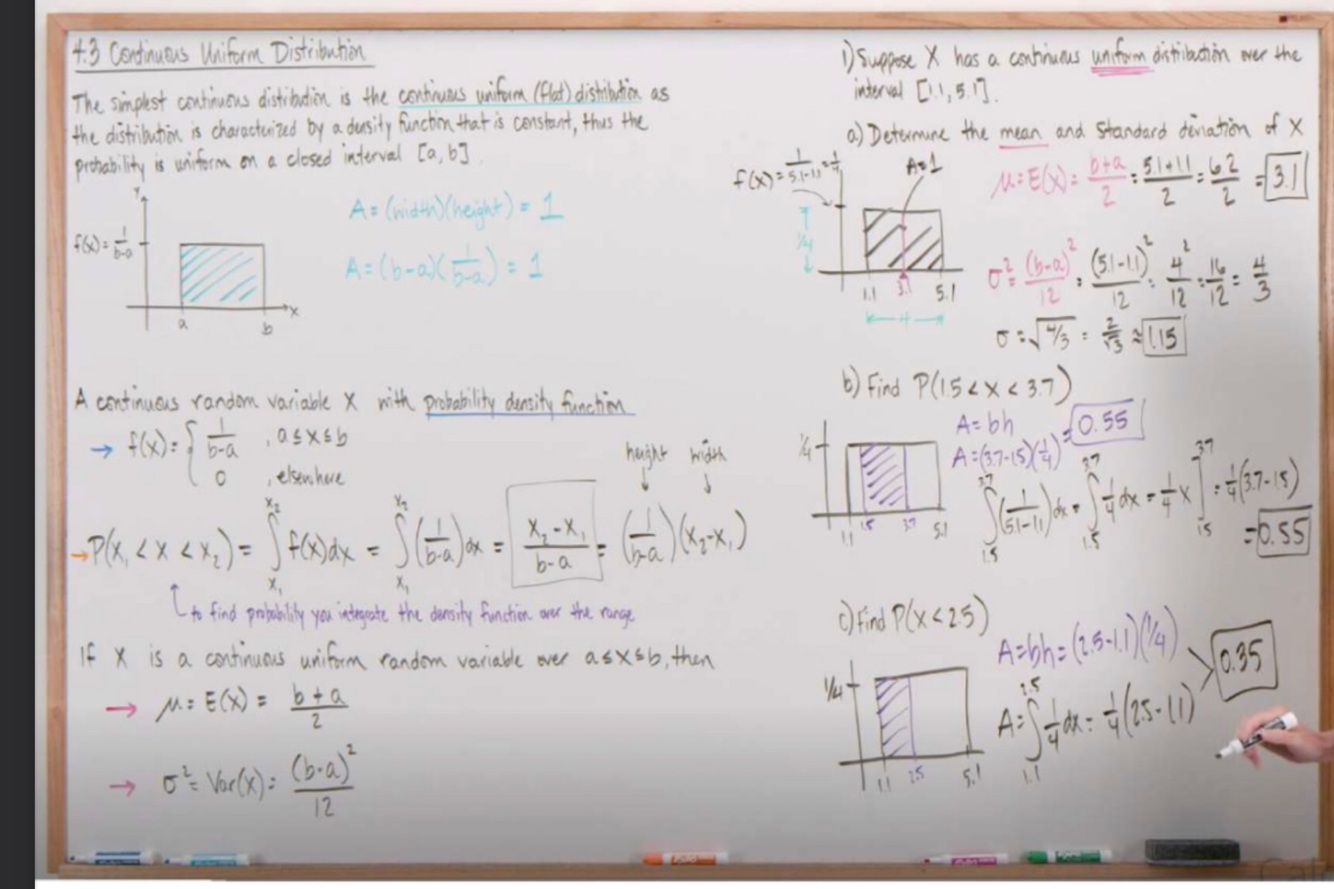 4.3 Continuous Uniform Distribution
The simplest continuous distribution is the continuous uniform (flat) distribution as
the distribution is characterized by a density function that is constant, thus the
probability is uniform on a closed interval [a, b].
y
f(x) = 1/(b-a)
a
b
x
A = (width)(height) = 1
A = (b-a)(1/(b-a)) = 1
A continuous random variable X with probability density function
→ f(x) = { 1/(b-a) , a ≤ x ≤ b
0 , elsewhere
height width
→ P(x₁ < X < x₂) = ∫_{x₁}^{x₂} f(x)dx = ∫_{x₁}^{x₂} (1/(b-a)) dx = (x₂-x₁)/(b-a) = (1/(b-a))(x₂-x₁)
to find probability you integrate the density function over the range
If X is a continuous uniform random variable over a≤x≤b, then
→ μ = E(X) = (b+a)/2
→ σ² = Var(X) = (b-a)²/12
1) Suppose X has a continuous uniform distribution over the
interval [1.1, 5.1].
a) Determine the mean and standard deviation of X
f(x) = 1/(5.1-1.1) = 1/4
A=1
1/4
1.1 3.1 5.1
4
μ = E(X) = (b+a)/2 = (5.1+1.1)/2 = 6.2/2 = 3.1
σ² = (b-a)²/12 = (5.1-1.1)²/12 = 4²/12 = 16/12 = 4/3
σ = √4/3 = 2/√3 ≈ 1.15
b) Find P(1.5 < X < 3.7)
1/4
1.1 1.5 3.7 5.1
A = bh
A = (3.7-1.5)(1/4) = 0.55
∫_{1.5}^{3.7} (1/(5.1-1.1)) dx = ∫_{1.5}^{3.7} 1/4 dx = 1/4 x ]_{1.5}^{3.7} = 1/4(3.7-1.5)
= 0.55
c) Find P(X < 2.5)
1/4
1.1 2.5 5.1
A = bh = (2.5-1.1)(1/4)
0.35
A = ∫_{1.1}^{2.5} 1/4 dx = 1/4(2.5-1.1)